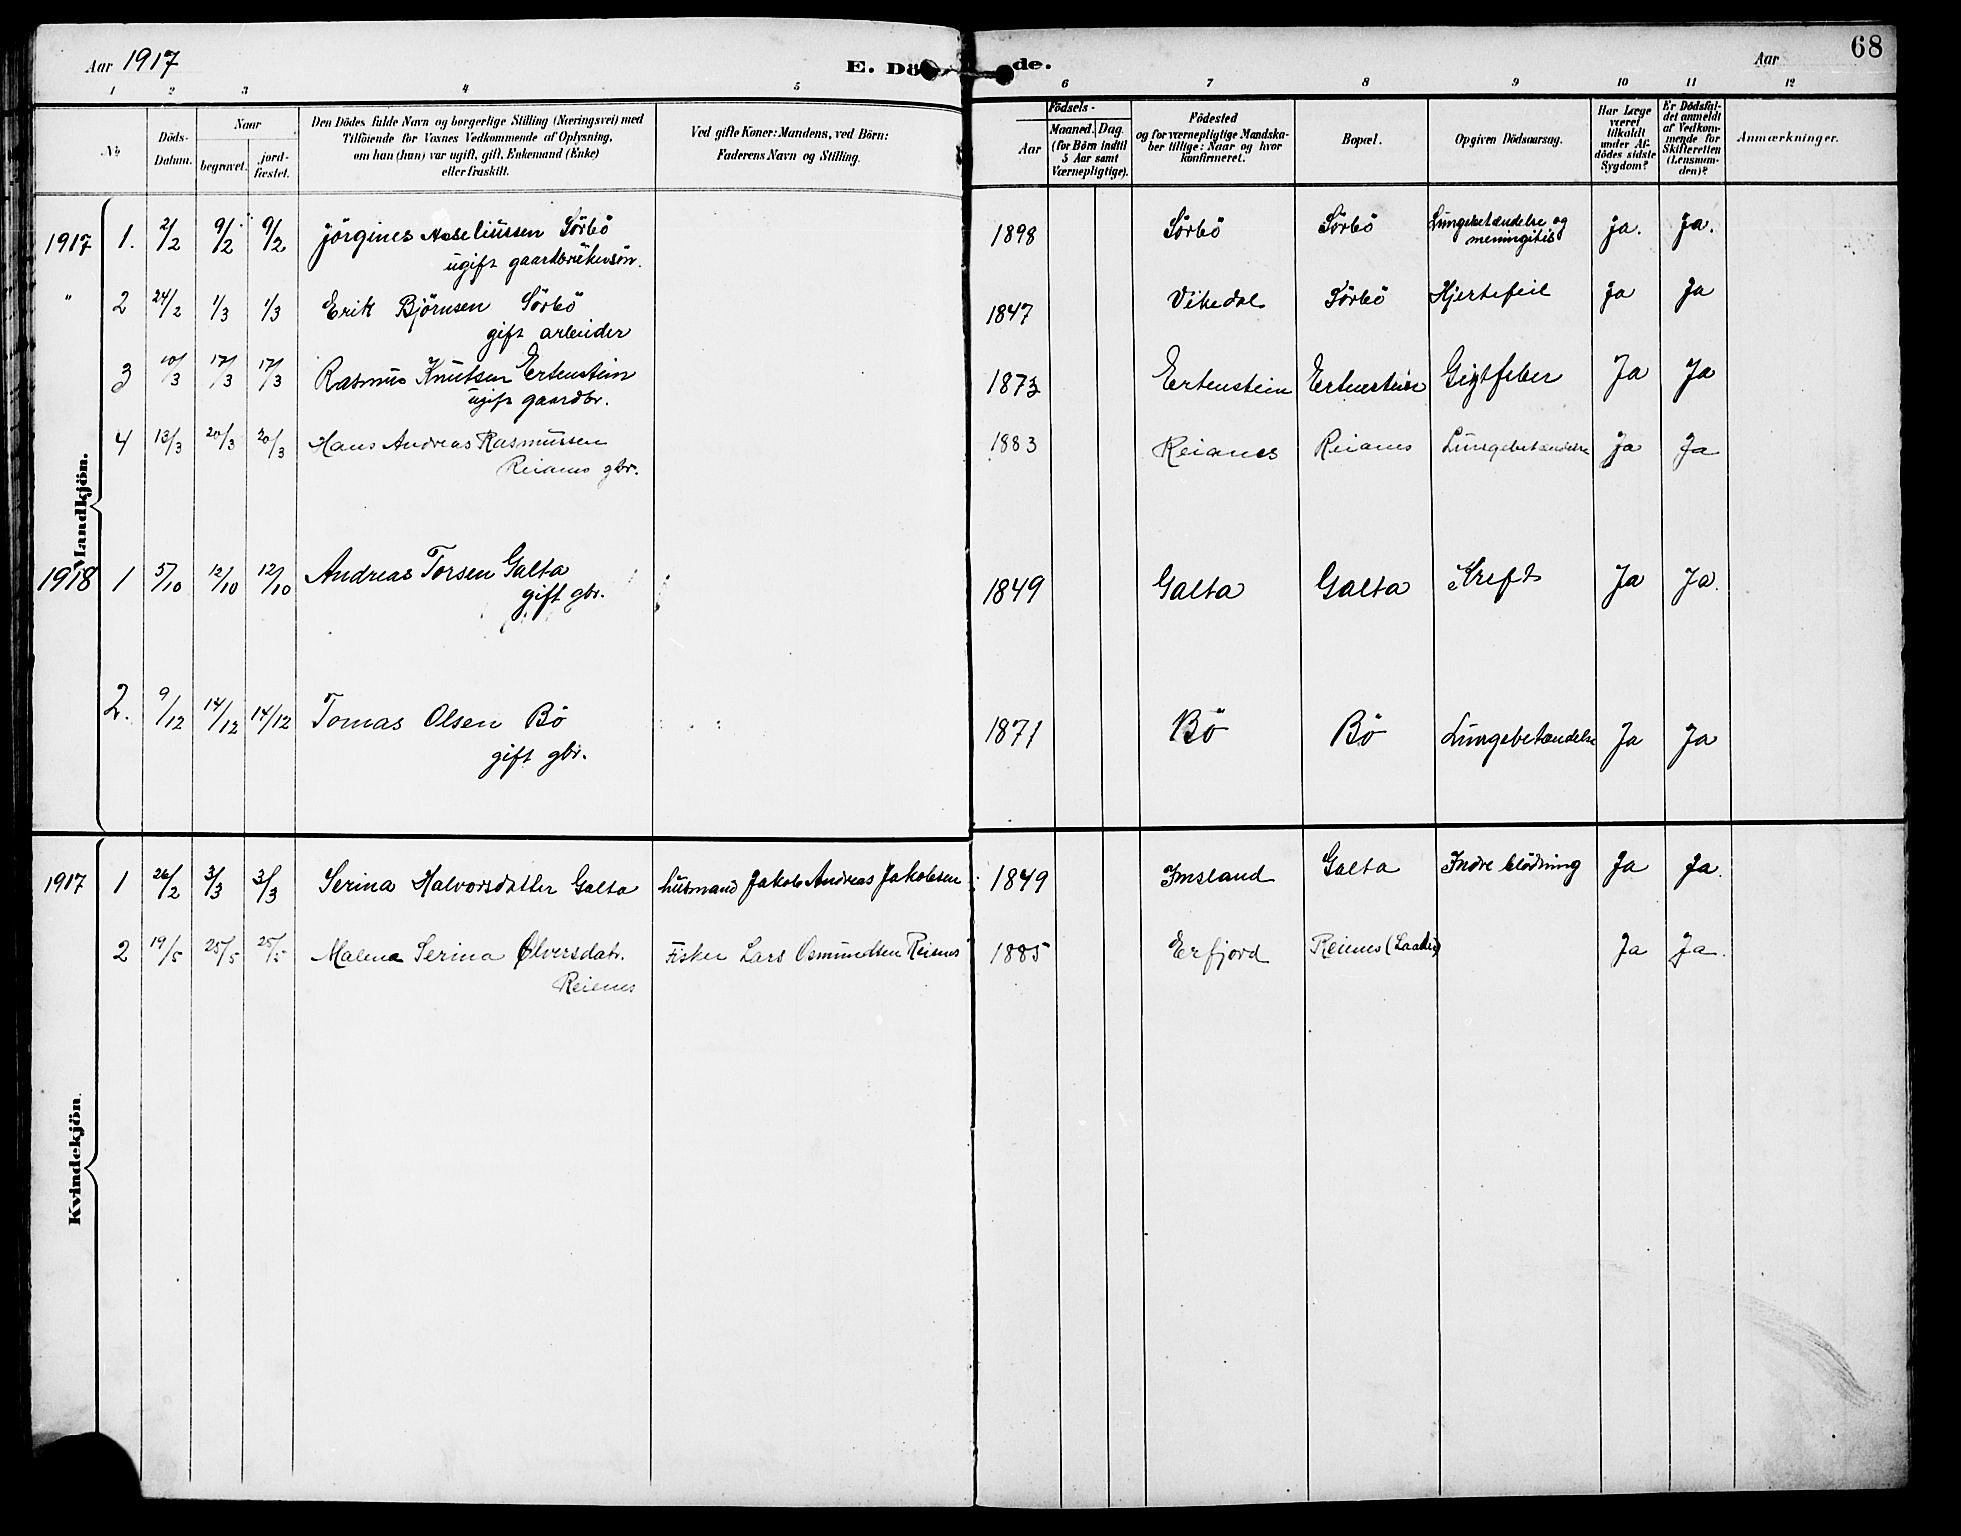 Aar 1917 E. Dö de. Aar 68
1 2 3 4 5 6 7 8 9 10 11 12
No
Döds-
Datum.
Naar
begravet.
jord-
fæstet.
Den Dödes fulde Navn og borgerlige Stilling (Næringsvei) med
Tilföiende for Voxnes Vedkommende af Oplysning,
om han (hun) var ugift, gift, Enkemand (Enke)
eller fraskilt.
Ved gifte Koner: Mandens, ved Börn:
Faderens Navn og Stilling.
Födsels-
Aar
Maaned. Dag.
(for Börn indtil
5 Aar samt
Værnepligtige).
Födested
og for værnepligtige Mandska-
ber tillige: Naar og hvor
konfirmeret.
Bopæl.
Opgiven Dödsaarsag.
Har Læge
været
tilkaldt
under Af-
dödes sidste
Sygdom?
Er Dödsfal-
det anmeldt
af Vedkom-
mende for
Skifteretten
(Lensman-
den)?
Anmærkninger.
Mandkjön.
1917 1. 2/2 9/2 9/2 Jörgines Sörbö 1898 Sörbö Sörbö Lungebetændelse og ja. ja.
ugift gaardbrükersön. meningitis
" 2 24/2 1/3 1/3 Erik Björnsen Sörbö 1847 Vikedal Sörbö Hjertefeil ja ja
gift arbeider
3 10/3 17/3 17/3 Rasmus Knutsen Ertenstein 1873 Ertenstein Ertenstein Gigtfeber Ja Ja
ugift gaardbr.
4 13/3 20/3 20/3 Hans Andreas Rasmussen 1883 Reianes Reianes Lungebetændelse Ja Ja
Reianes gbr.
1918 1 5/10 12/10 12/10 Andreas Torsen Galta 1849 Galta Galta Kreft Ja Ja.
gift gbr.
2. 9/12 14/12 14/12 Tomas Olsen Bö 1871 Bö Bö Lungebetændelse Ja Ja
gift gbr.
Kvindekjön.
1917 1 26/2 3/3 3/3 Serina Halvorsdatter Galta husmand Jakob Andreas Jakobsen 1849 Imsland Galta Indre blödning Ja Ja.
2 19/5 25/5 25/5 Malena Serina Ølversdatr. Fisker Lars Osmundsen Reienes 1885 Erfjord Reienes Ja Ja.
Reienes